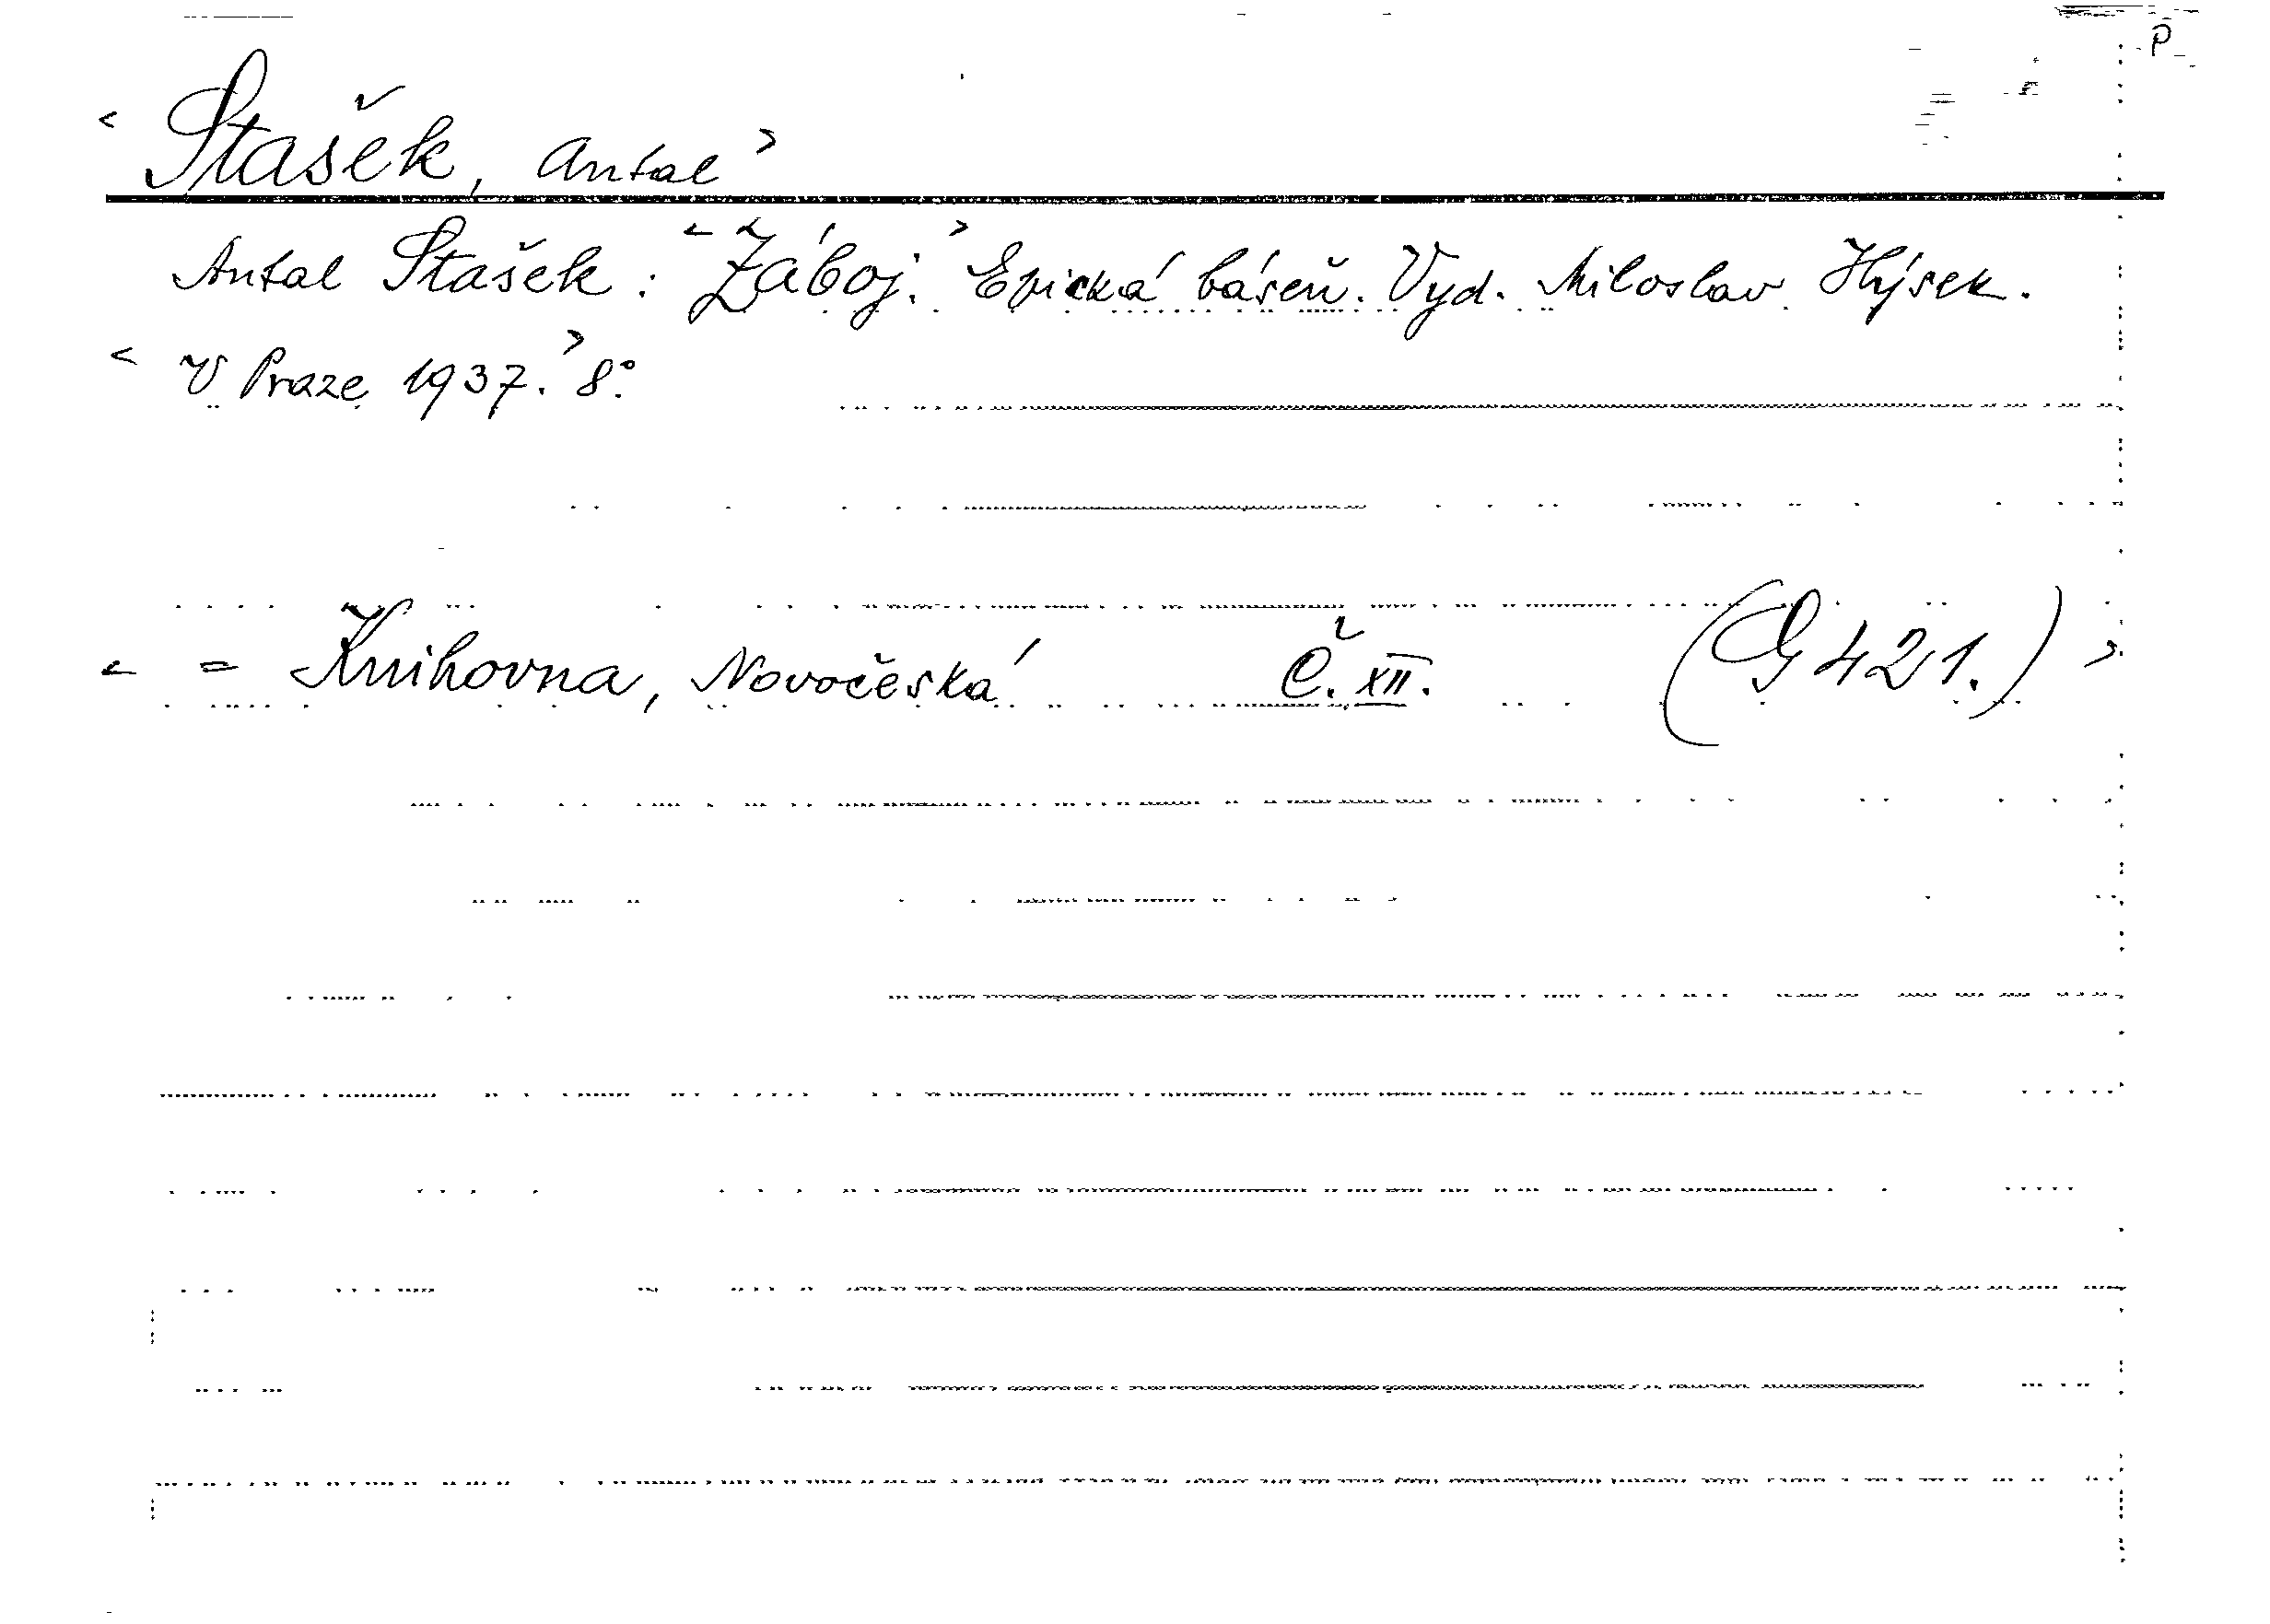 P
< Stašek, Antal >
Antal Stašek: <Žáboj.> Epická báseň. Vyd. Miloslav Hýsek.
< V Praze 1937.> 8°.
< = Knihovna, Novočeská Č. XII. (G 421.) >